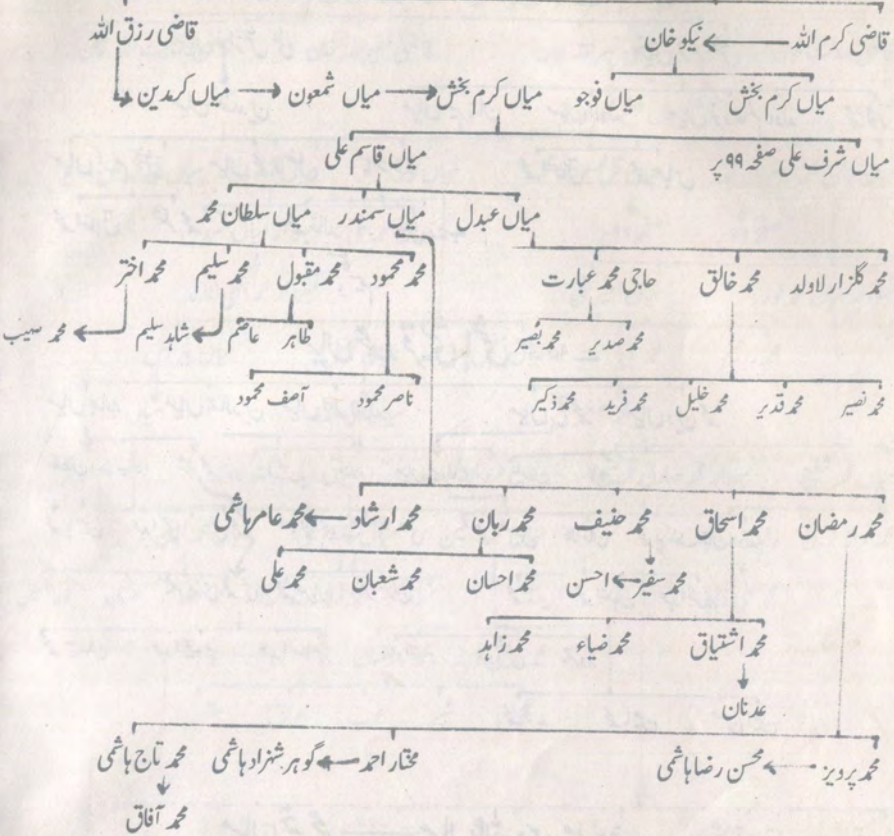 قاضی کرم اللہ ← نیکو خان قاضی رزق اللہ
میاں کرم بخش میاں فوجو میاں کرم بخش ← میاں شمعون ← میاں کرمدین
میاں شرف علی صفحہ ۹۹ پر میاں قاسم علی
میاں عبدل میاں سمندر میاں سلطان محمد
محمد گلزار لاولد محمد خالق حاجی محمد عبارت محمد محمود محمد مقبول محمد سلیم محمد اختر
محمد صدیر محمد بصیر طاہر عاصم شاہد سلیم محمد صیب
محمد نصیر محمد قدیر محمد خلیل محمد فرید محمد ذکیر ناصر محمود آصف محمود
محمد رمضان محمد اسحاق محمد حنیف محمد ربان محمد ارشاد ← محمد عامر ہاشمی
محمد سفیر ← احسن محمد احسان محمد شعبان محمد علی
محمد اشتیاق محمد ضیاء محمد زاہد
عدنان
محمد پرویز ← محسن رضا ہاشمی مختار احمد ← گوہر شہزاد ہاشمی محمد تاج ہاشمی
محمد آفاق